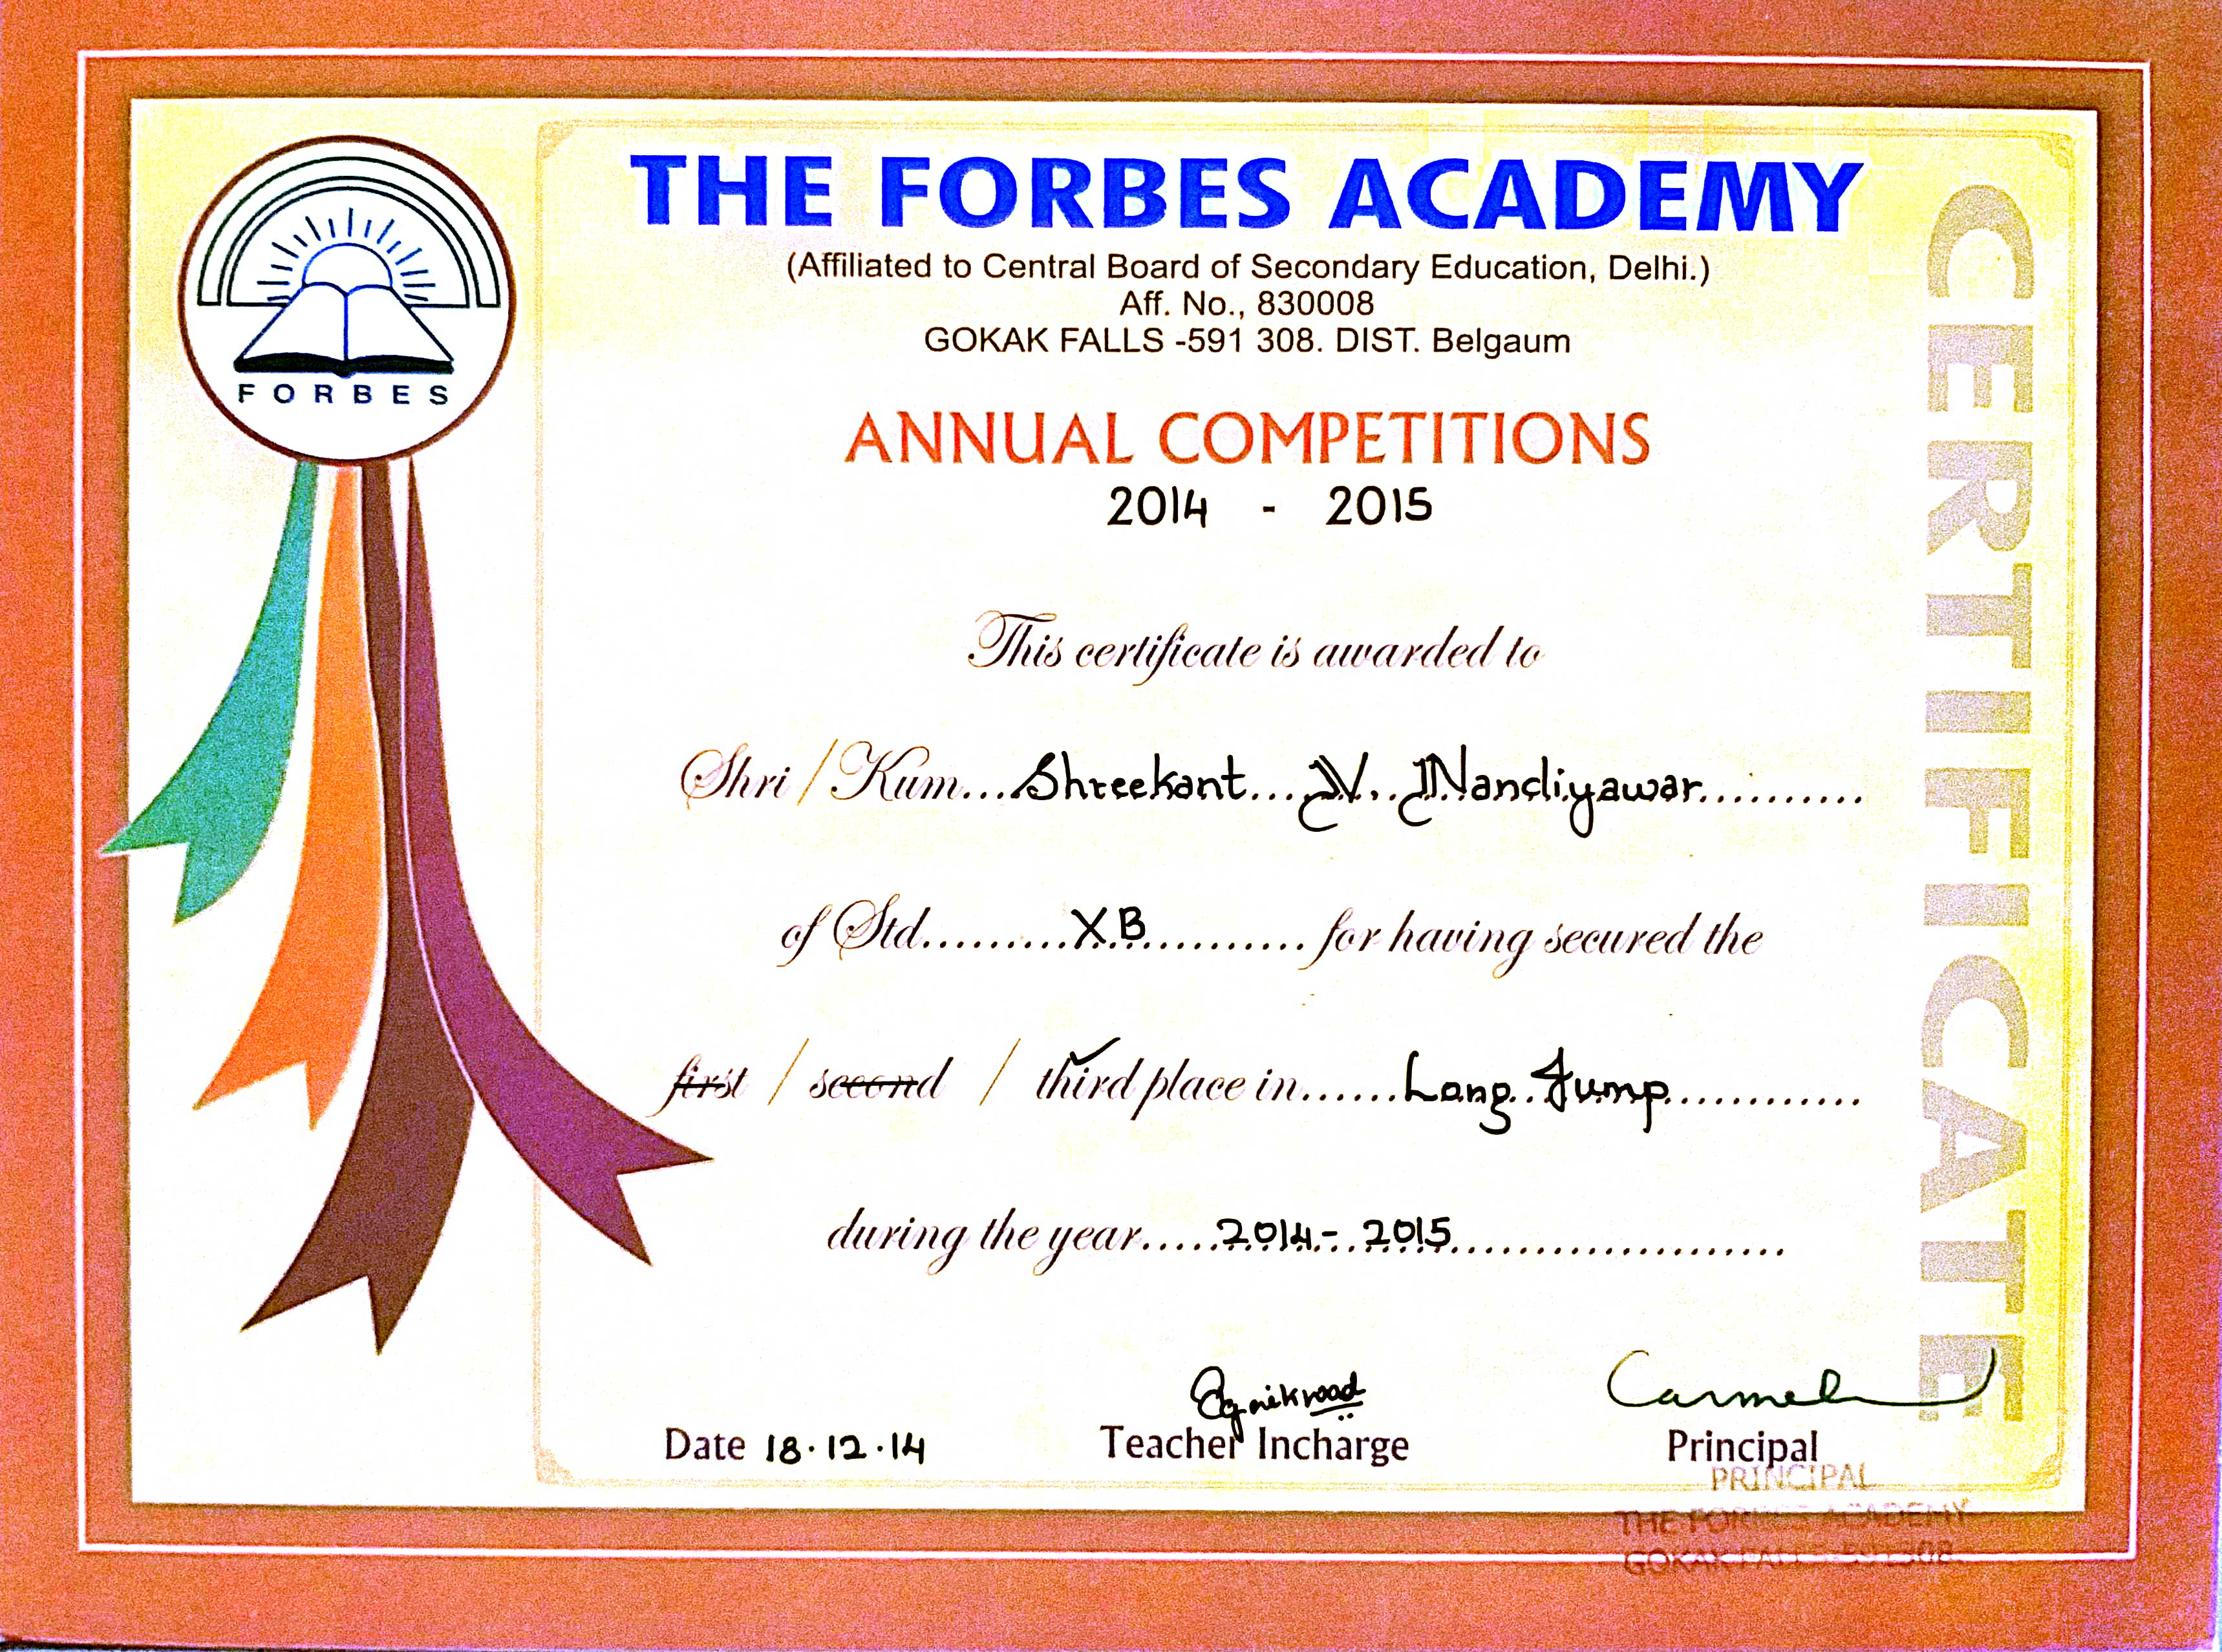 FORBES
THE FORBES ACADEMY
(Affiliated to Central Board of Secondary Education, Delhi.)
Aff. No., 830008
GOKAK FALLS -591 308. DIST. Belgaum
ANNUAL COMPETITIONS
2014 - 2015
This certificate is awarded to
Shri / Kum...Shreekant...N...Nandiyawar..........
of Std.........XB............ for having secured the
first / second / third place in......Long Jump............
during the year.....2014 - 2015..........................
Carmel
Date 18.12.14 Teacher Incharge Principal
PRINCIPAL
THE FORBES ACADEMY
GOKAK FALLS-591308
CERTIFICATE